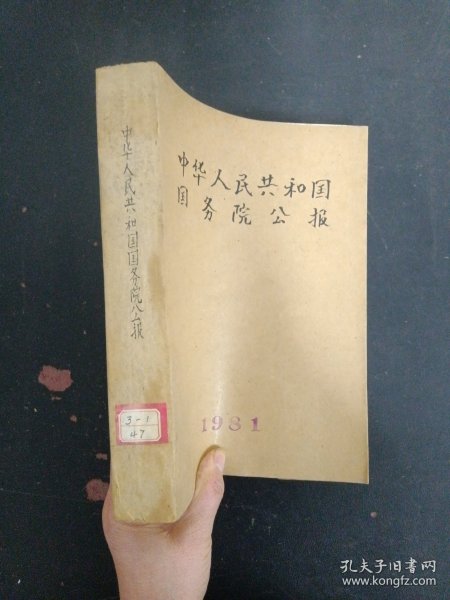 中华人民共和国国务院公报
3-1
47
中华人民共和国
国务院公报
1981
孔夫子旧书网
www.kongfz.com